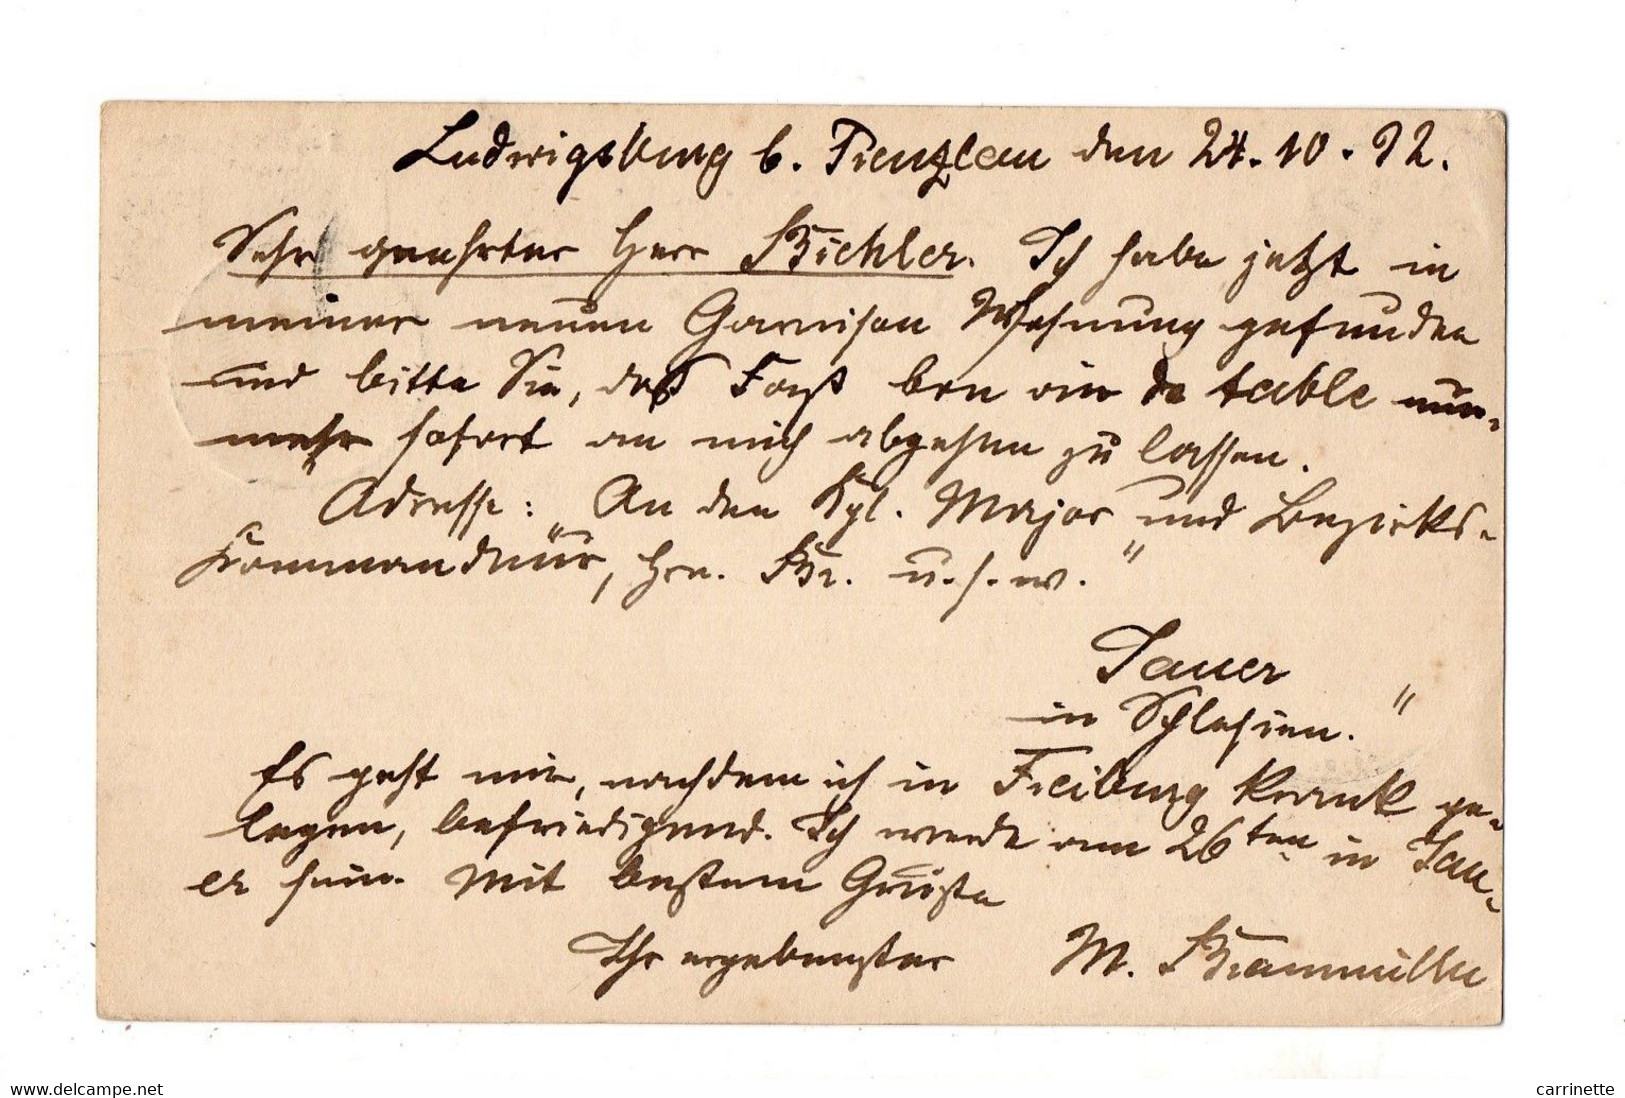 Ludwigsburg b. Prenzlau den 24.10.92.
Sehr geehrter Herr Bichler. Ich habe jetzt in
meiner neuen Garnison Wohnung gefunden
und bitte Sie, das Faß bon vin de table nun-
mehr sofort an mich abgehen zu lassen.
Adresse: „An den Kgl. Major und Bezirks-
Kommandeur, Hrn. Br. u.s.w."
Jauer
in Schlesien."
Es geht mir, nachdem ich in Freiburg krank ge-
legen, befriedigend. Ich werde am 26ten in Jau-
er sein. Mit bestem Gruße
Ihr ergebenster M.
www.delcampe.net
carrinette